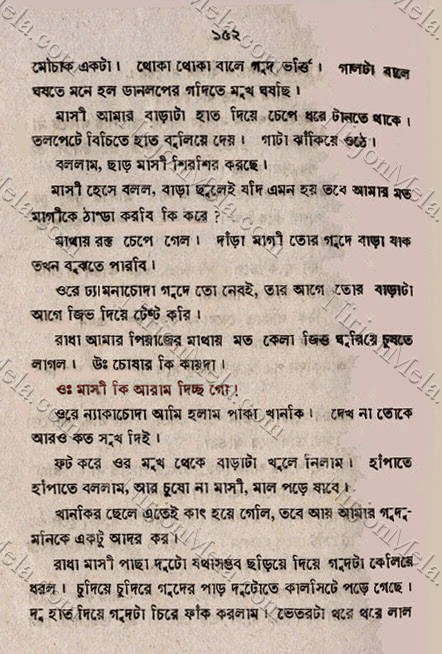 ১৫২
মৌচাক একটা। থোকা থোকা বালে গুদ ভর্ত্তি। গালটা বালে
ঘষতে মনে হল ডানলপের গদিতে মুখ ঘষছি।
মাসী আমার বাড়াটা হাত দিয়ে চেপে ধরে টানতে থাকে।
তলপেটে বিচিতে হাত বুলিয়ে দেয়। গাটা ঝাঁকিয়ে ওঠে।
বললাম, ছাড় মাসী শিরশির করছে।
মাসী হেসে বলল, বাড়া ছুলেই যদি এমন হয় তবে আমার মত
মাগীকে ঠান্ডা করবি কি করে?
মাথায় রক্ত চেপে গেল। দাঁড়া মাগী তোর গুদে বাড়া যাক
তখন বুঝতে পারবি।
ওরে ঢ্যামনাচোদা গুদে তো নেবই, তার আগে তোর বাড়াটা
আগে জিভ দিয়ে টেস্ট করি।
রাধা আমার পিয়াজের মাথায় মত কেলা জিভ ঘুরিয়ে চুষতে
লাগল। উঃ চোষার কি কায়দা।
ওঃ মাসী কি আরাম দিচ্ছ গো!
ওরে ন্যাকাচোদা আমি হলাম পাকা খানকি। দেখ না তোকে
আরও কত সুখ দিই।
ফট করে ওর মুখ থেকে বাড়াটা খুলে নিলাম। হাঁপাতে
হাঁপাতে বললাম, আর চুষো না মাসী, মাল পড়ে যাবে।
খানকির ছেলে এতেই কাৎ হয়ে গেলি, তবে আয় আমার গুদু-
মনিকে একটু আদর কর।
রাধা মাসী পাছা দুটো যথাসম্ভব ছড়িয়ে দিয়ে গুদটা কেলিয়ে
ধরল। চুদিয়ে চুদিরে গুদের পাড় দুটোতে কালসিটে পড়ে গেছে।
দু হাত দিয়ে গুদটা চিরে ফাঁক করলাম। ভেতরটা থরে থরে লাল
NirjonMela.com